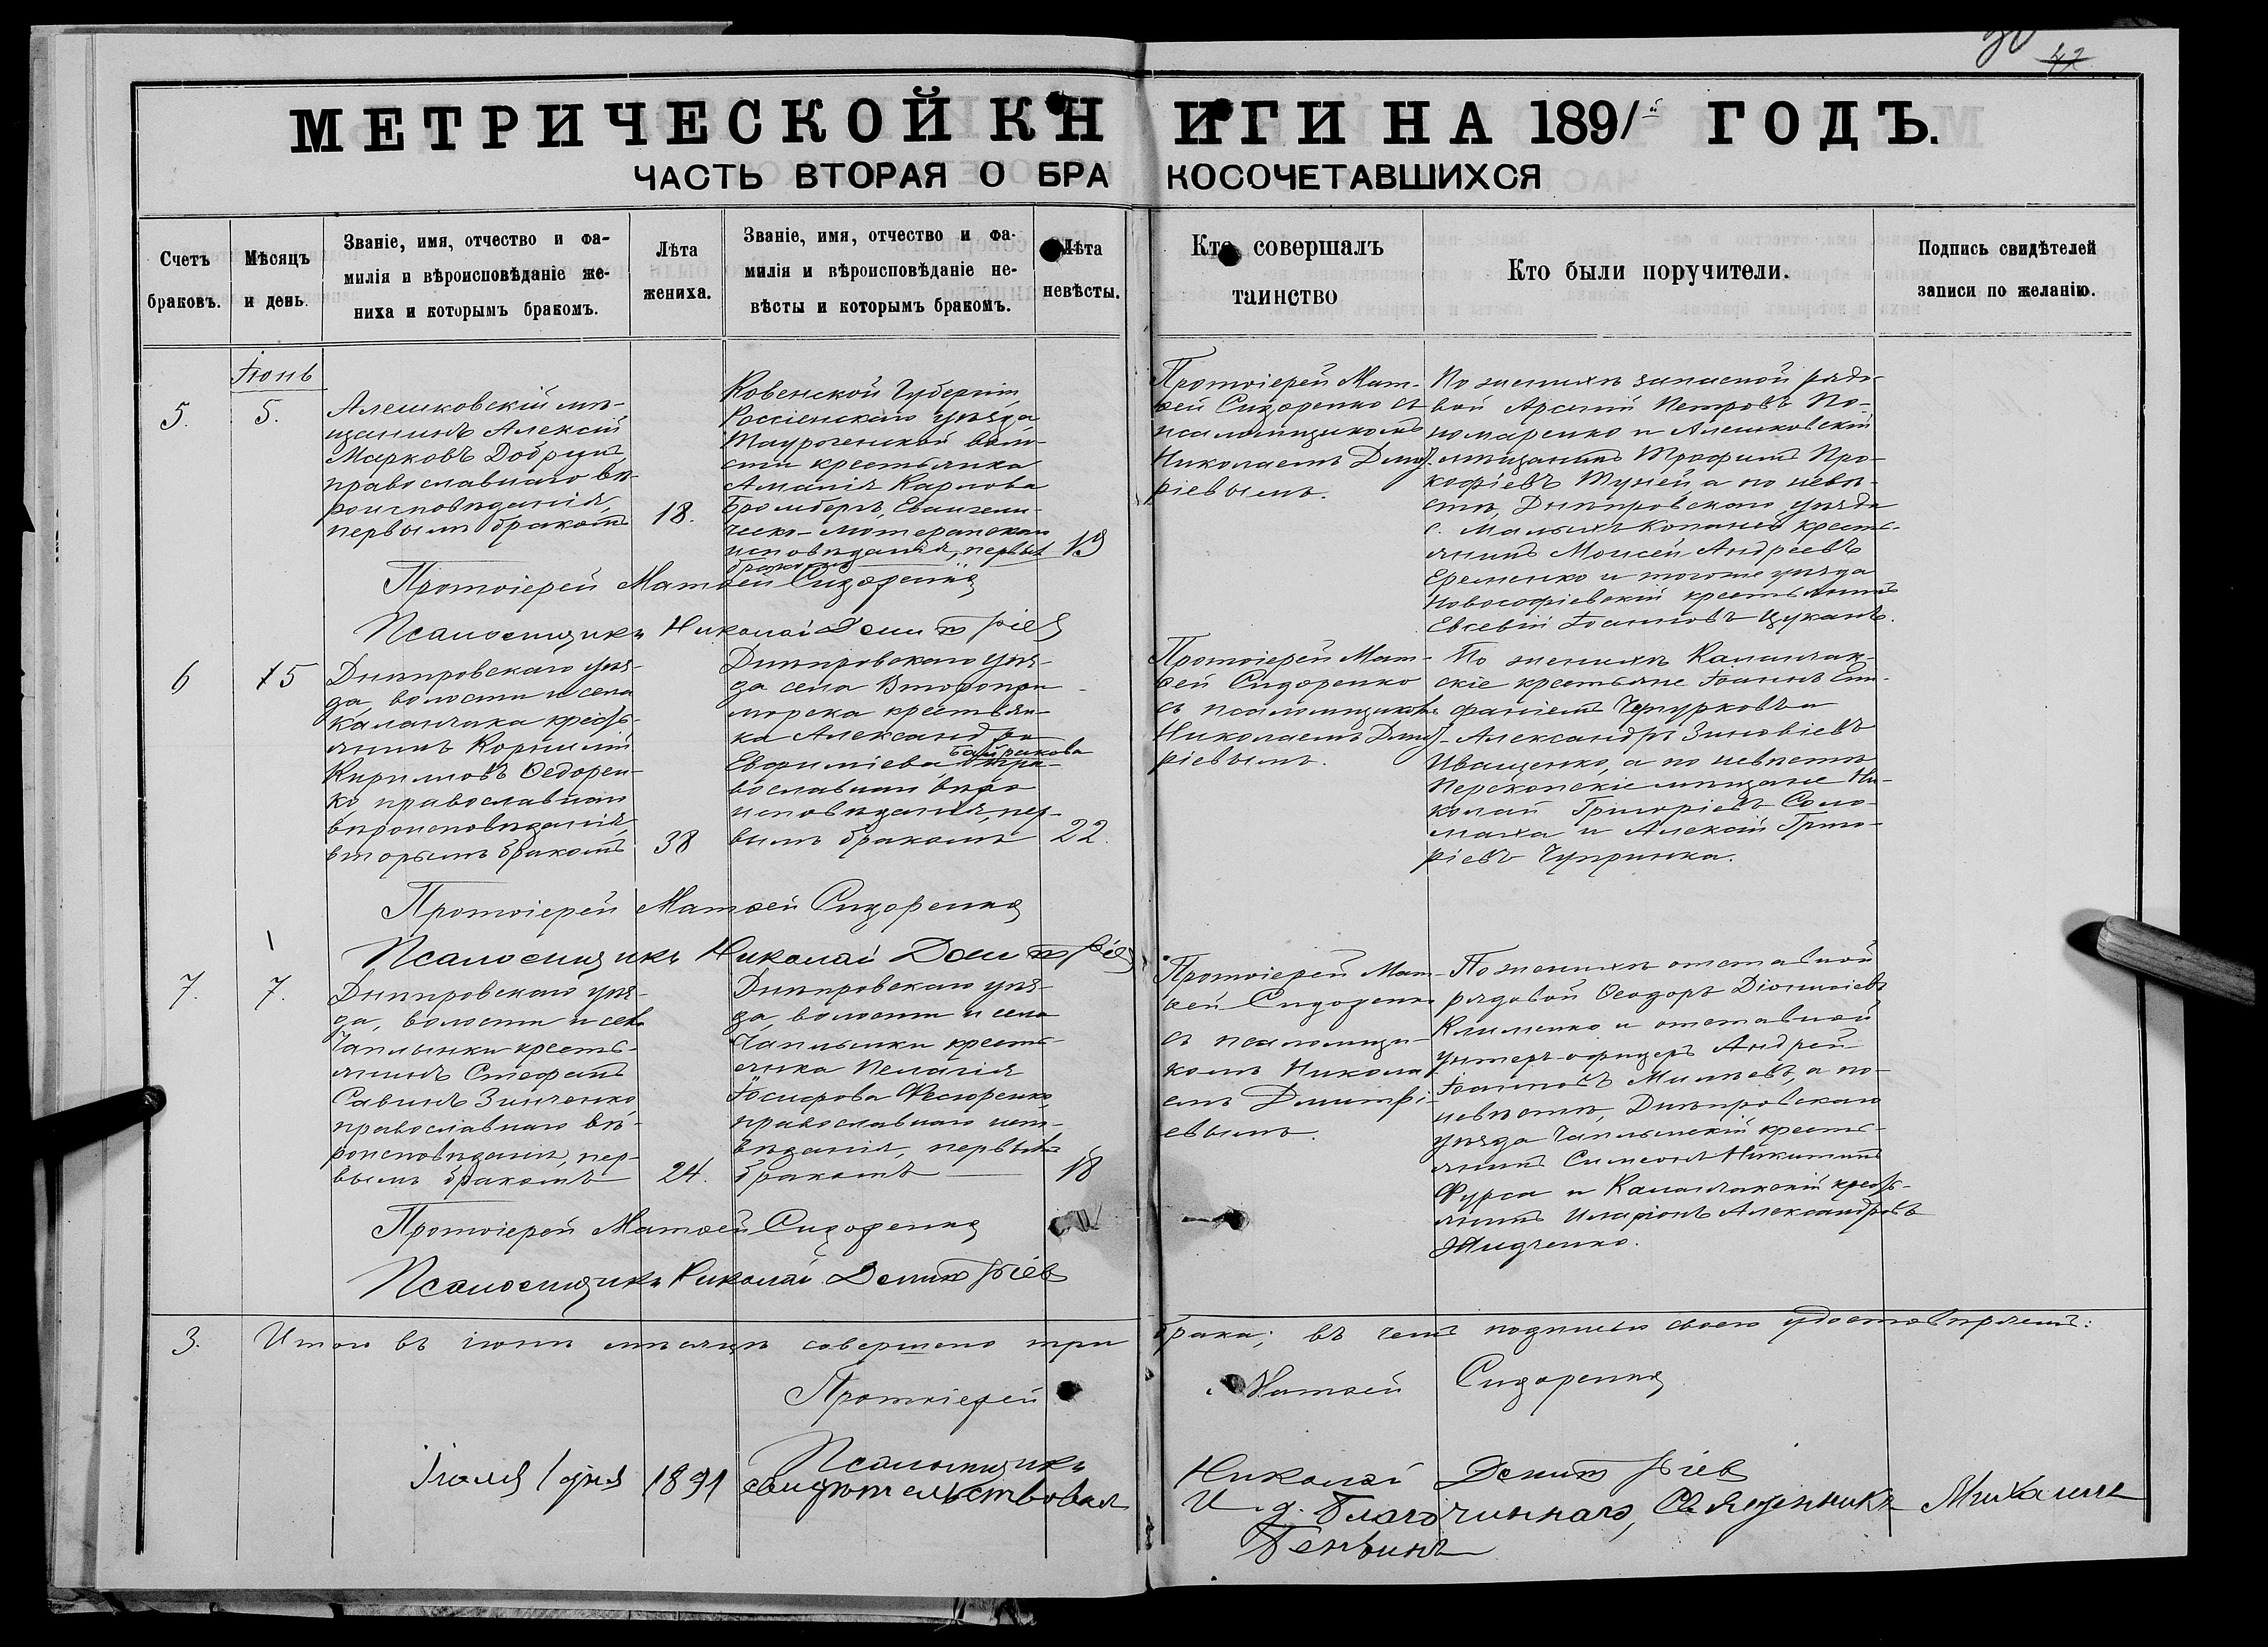 42
МЕТРИЧЕСКОЙ КНИГИ НА 1891й ГОДЪ.
ЧАСТЬ ВТОРАЯ О БРАКОСОЧЕТАВШИХСЯ
Счетъ браковъ.
Мѣсяцъ и день.
Званіе, имя, отчество и фа-
милія и вѣроисповѣданіе же-
ниха и которымъ бракомъ.
Лѣта
жениха.
Званіе, имя, отчество и фа-
милія и вѣроисповѣданіе не-
вѣсты и которымъ бракомъ.
Лѣта
невѣсты.
Кто совершалъ
таинство
Кто были поручители.
Подпись свидѣтелей
записи по желанію.
Іюнь
5.
5.
Алешковскій мѣ-
щанинъ Алексій
Марковъ
православнаго вѣ-
роисповѣданія,
первымъ бракомъ
18.
Ковенской Губерніи,
Россіенскаго уѣзда
Таурогенской воло-
сти крестьянка
Амалія Карлова
Бромбергъ, Евангели-
ческо-Лютеранскаго
исповѣданія, первымъ
бракомъ
19
Протоіерей Мат-
ѳей Сидоренко съ
псаломщикомъ
Николаемъ Димит-
ріевымъ.
По женихѣ запасной рядо-
вой Арсеній Петровъ По-
номаренко и Алешковскій
мѣщанинъ Трофимъ Про-
кофіевъ а по невѣ-
стѣ, Днѣпровскаго уѣзда
с. Малыхъ Копаней кресть-
янинъ Моисей Андреевъ
Еременко и тогоже уѣзда
Новософіевскій крестьянинъ
Евсевій Іоанновъ Цуканъ.
Протоіерей Матѳей Сидоренко
Псаломщикъ Николай Димитріевъ
6
15
Днѣпровскаго уѣз-
да, волости и села
Каланчака кресть-
янинъ Корнилій
Кирилловъ Ѳедорен-
ко, православнаго
вѣроисповѣданія,
вторымъ бракомъ
38
Днѣпровскаго уѣз-
да села Второпри-
морска крестьян-
ка Александра
Евфиміева Байракова пра-
вославнаго вѣро
исповѣданія, пер-
вымъ бракомъ
22.
Протоіерей Мат-
ѳей Сидоренко
съ псаломщикомъ
Николаемъ Димит-
ріевымъ.
По женихѣ Каланчак-
скіе крестьяне Іоаннъ Епи-
фаніевъ Чепурковъ и
Александръ Зиновіевъ
Иващенко, а по невѣстѣ
Перекопскіе мѣщане Ни-
колай Григоріевъ Соло-
маха и Алексій Григо-
ріевъ Чупринка.
Протоіерей Матѳей Сидоренко
Псаломщикъ Николай Димитріевъ
7.
7.
Днѣпровскаго уѣз-
да, волости и села
Чаплынки кресть-
янинъ Стефанъ
Савинъ Зинченко,
православнаго вѣ-
роисповѣданія, пер-
вымъ бракомъ
24.
Днѣпровскаго уѣз-
да, волости и села
Чаплынки кресть-
янка Пелагія
Іосифова Фесюренко,
православнаго испо-
вѣданія, первымъ
бракомъ
18
Протоіерей Мат-
ѳей Сидоренко
съ псаломщи-
комъ Никола-
емъ Димитрі-
евымъ.
По женихѣ отставной
рядовой Ѳеодоръ Діонисіевъ
Клименко и отставной
унтеръ-офицеръ Андрей
Іоанновъ Милѣевъ, а по
невѣстѣ, Днѣпровскаго
уѣзда Чаплынскій кресть-
янинъ Симеонъ Никитинъ
Фурса и Каланчакскій кресть-
янинъ Иларіонъ Александровъ
Жидченко.
Протоіерей Матѳей Сидоренко
Псаломщикъ Николай Димитріевъ
3. Итого въ іюнѣ мѣсяцѣ совершено три брака; въ чемъ подписью своею удостовѣряемъ:
Протоіерей Матѳей Сидоренко
Псаломщикъ Николай Димитріевъ
Іюля 1 дня 1891 свидѣтельствовалъ И. д. Благочиннаго, Священникъ Михаилъ